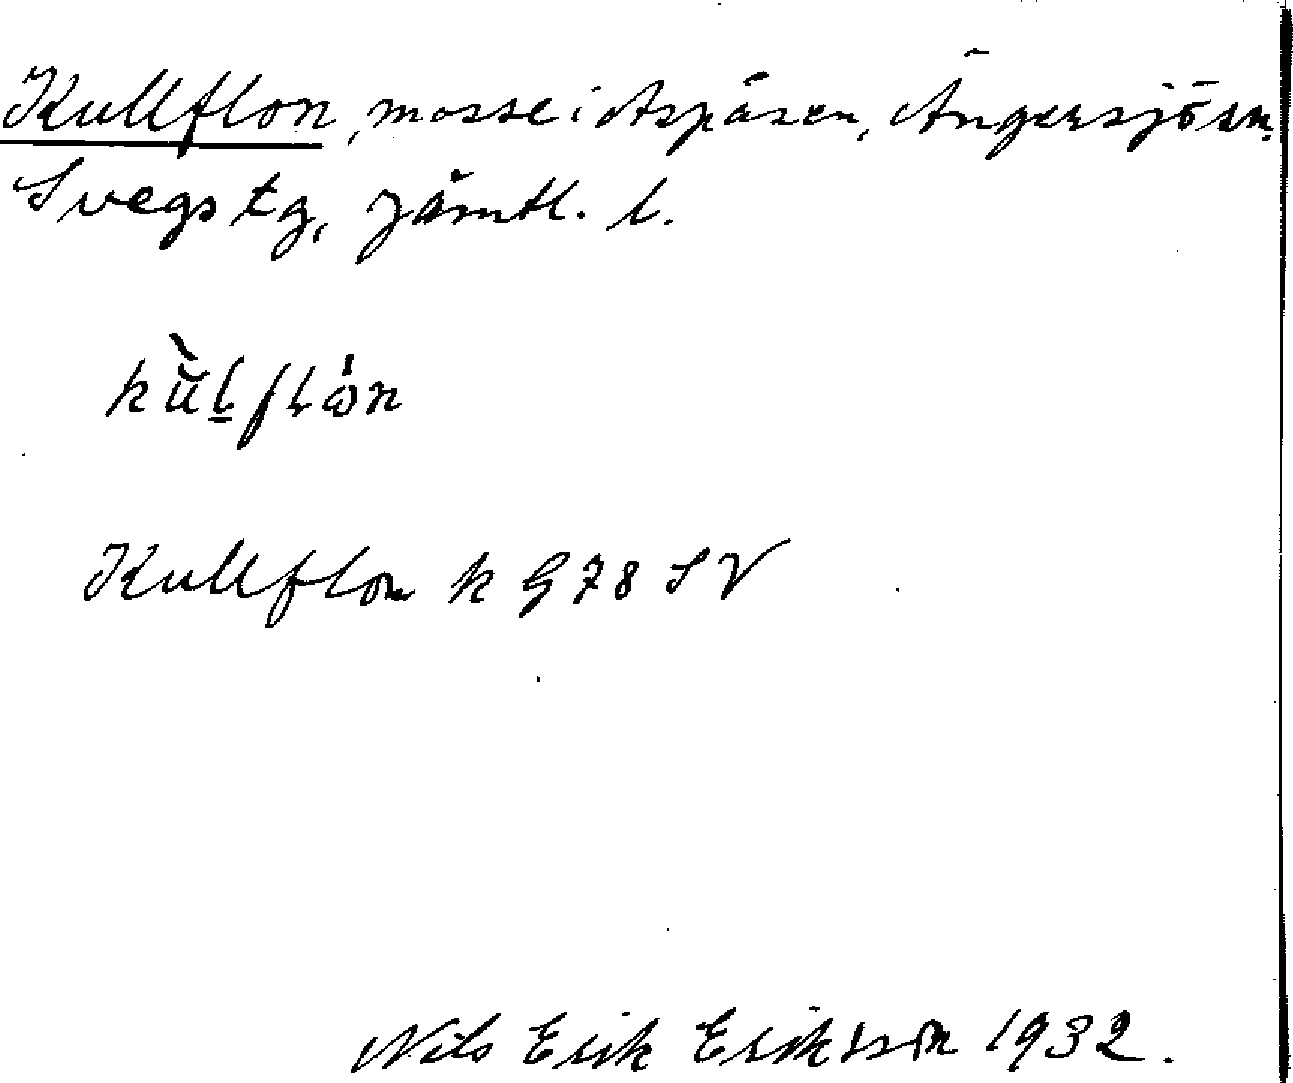 Kullflon, mosse i Aspåsen, Ängersjö sn.
Svegs tg, Jämtl. l.
kùlflón
Kullflon k G 78 SV
Nils Erik Eriksson 1932.